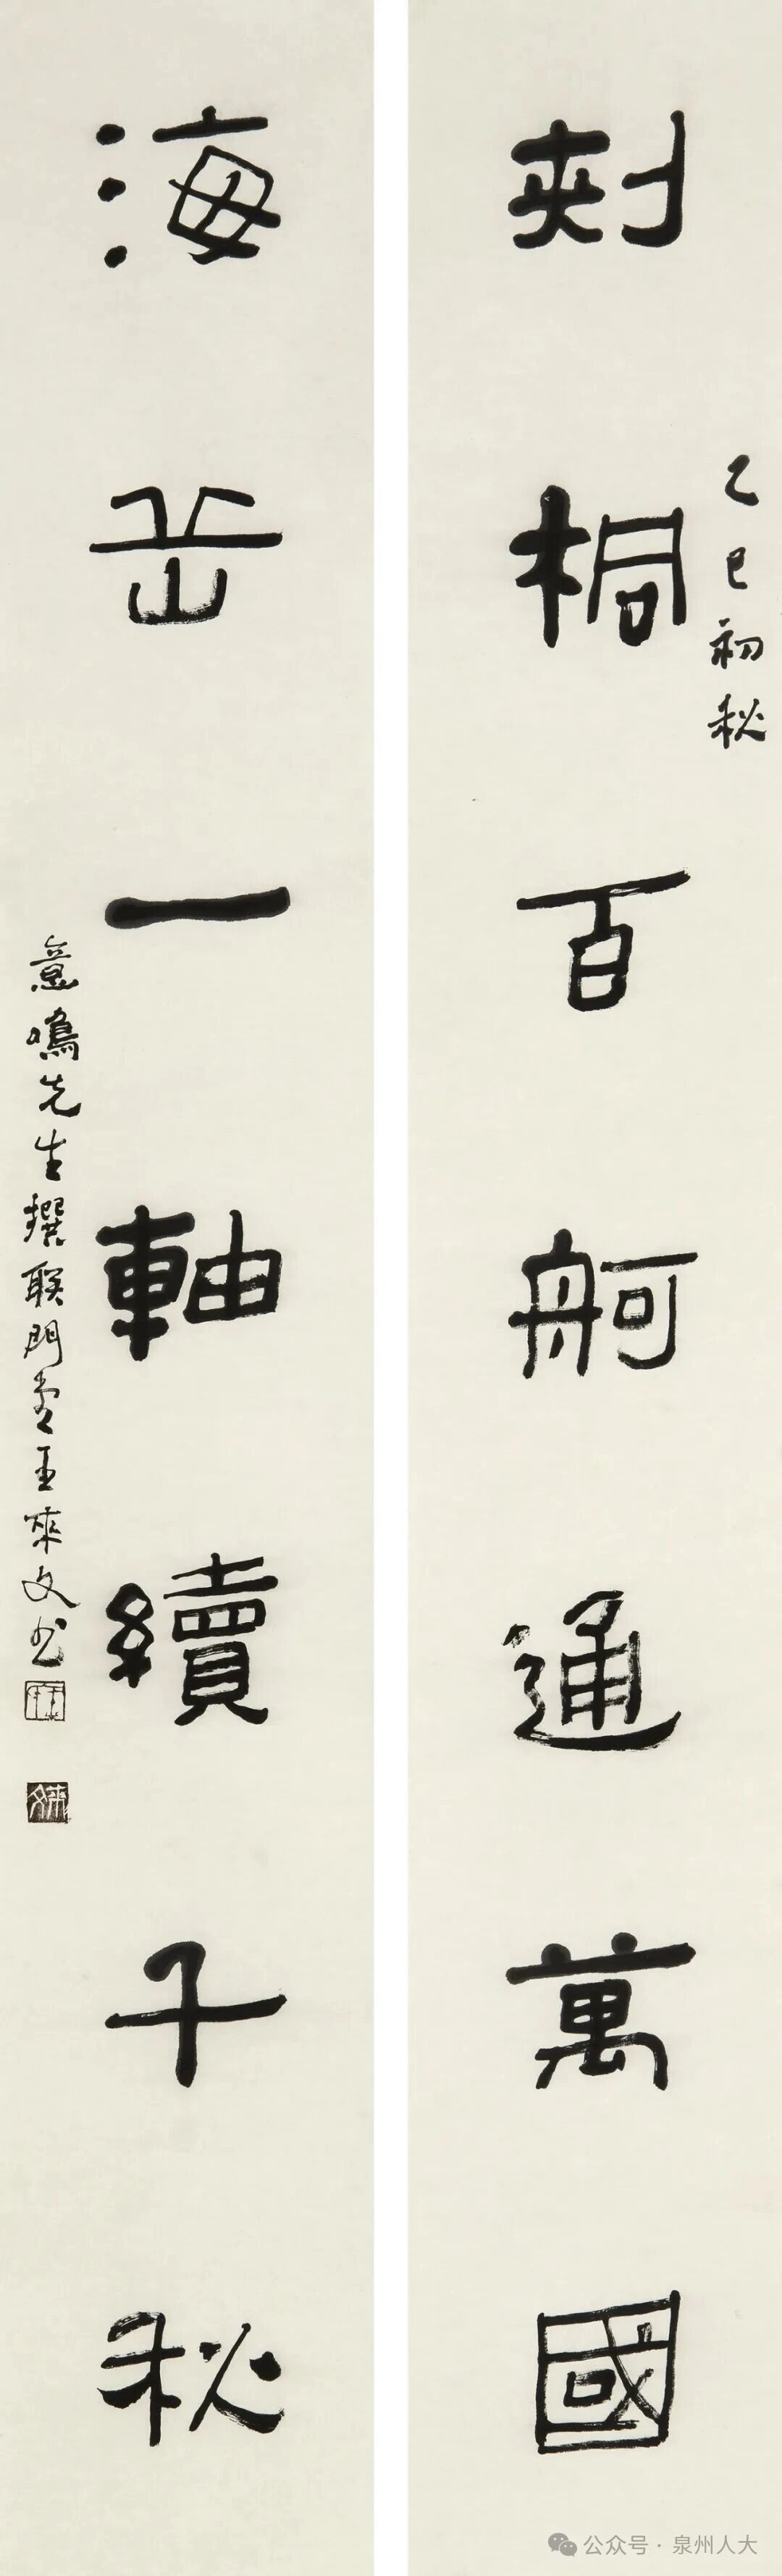 刺桐百舸通萬國
乙巳初秋
海岳一軸續千秋
意鳴先生撰联門王來文书
公众号·泉州人大